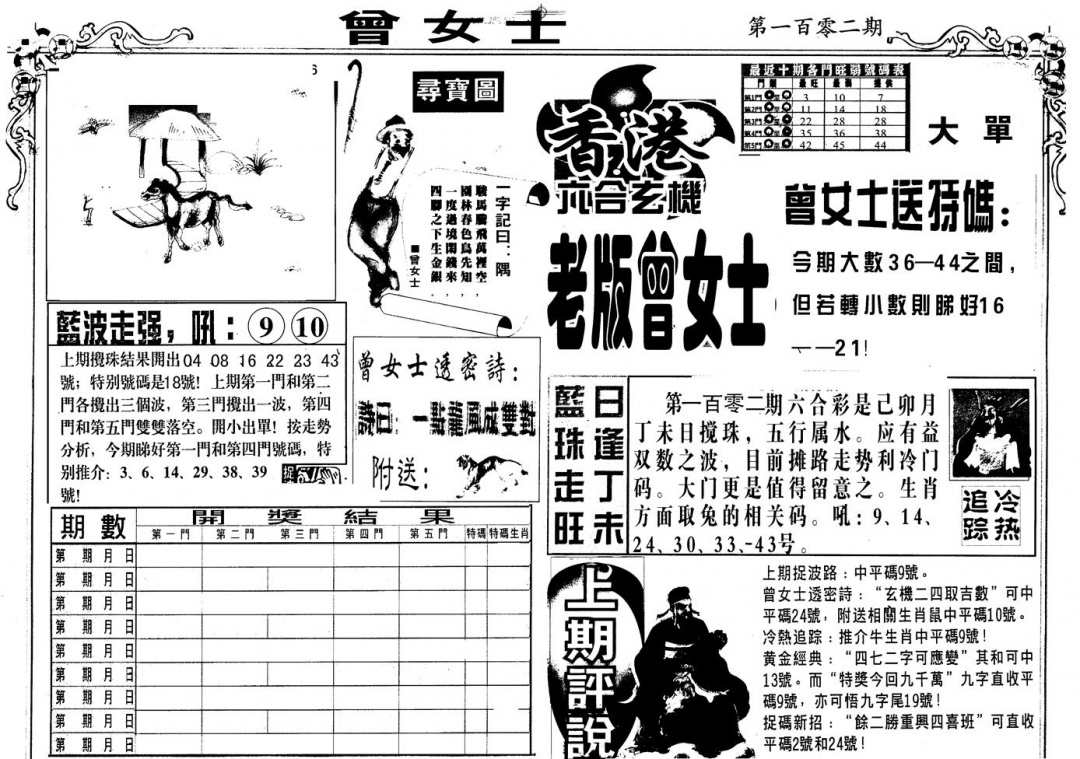 曾女士
第一百零二期
尋寶圖
一字記曰：隅
駿馬騰飛萬裡空，
園林春色鳥先知，
一度過境閑錢來，
四腳之下生金銀。
■曾女士
香港
六合玄機
老版曾女士
最近十期各門旺弱號碼表
門類 最旺 最弱 提供
第1門 3 10 7
第2門 11 14 18
第3門 22 28 28
第4門 35 36 38
第5門 42 45 44
大單
曾女士送特碼：
今期大數36—44之間，
但若轉小數則睇好16
——21！
藍波走强，吼：9 10
上期攪珠結果開出04 08 16 22 23 43
號；特别號碼是18號！上期第一門和第二
門各攪出三個波，第三門攪出一波，第四
門和第五門雙雙落空。開小出單！按走勢
分析，今期睇好第一門和第四門號碼，特
别推介：3、6、14、29、38、39
號！
曾女士透密詩：
詩曰：一點龍風成雙對
附送：
藍珠走旺
日逢丁未
第一百零二期六合彩是己卯月
丁未日搅珠，五行属水。应有益
双数之波，目前摊路走势利冷门
码。大门更是值得留意之。生肖
方面取兔的相关码。吼：9、14、
24、30、33、43号。
冷热
追踪
期數
開獎結果
第一門 第二門 第三門 第四門 第五門 特碼 特碼生肖
第 期 月 日
第 期 月 日
第 期 月 日
第 期 月 日
第 期 月 日
第 期 月 日
第 期 月 日
第 期 月 日
第 期 月 日
上期評説
上期捉波路：中平碼9號。
曾女士透密詩：“玄機二四取吉數”可中
平碼24號，附送相關生肖鼠中平碼10號。
冷熱追踪：推介牛生肖中平碼9號！
黄金經典：“四七二字可應變”其和可中
13號。而“特獎今回九千萬”九字直收平
碼9號，亦可悟九字尾19號！
捉碼新招：“餘二勝重興四喜班”可直收
平碼2號和24號！